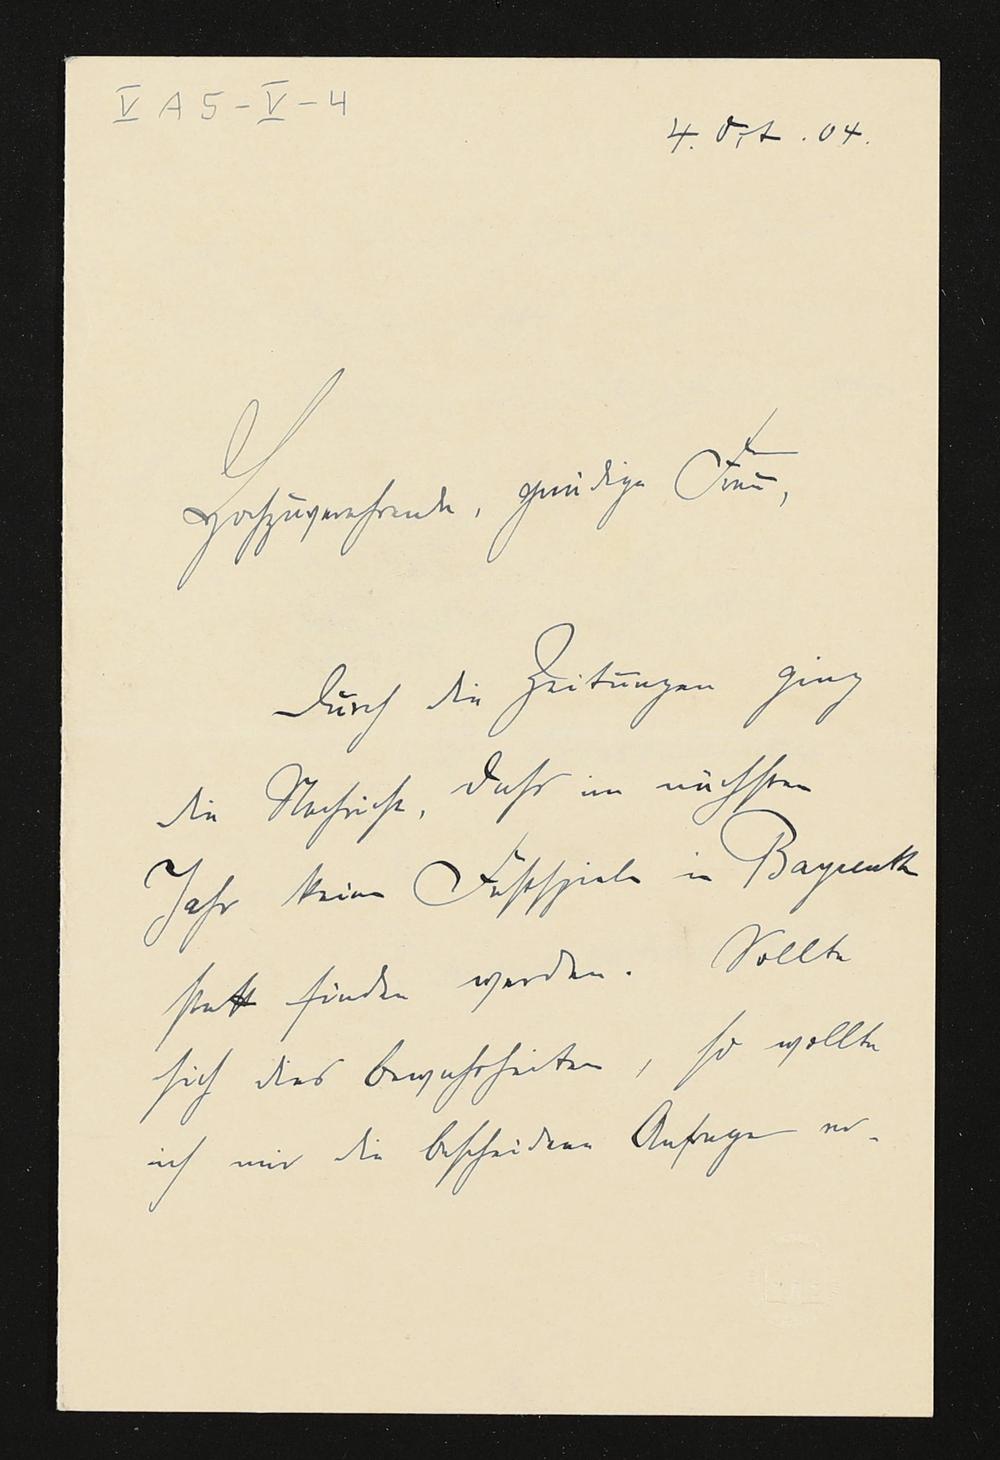 V A 5 - V - 4
4. Okt. 04.
Hochzuverehrende, gnädige Frau,
Durch die Zeitungen ging
die Nachricht, dass im nächsten
Jahr keine Festspiele in Bayreuth
statt finden werden. Sollte
sich dies bewahrheiten, so wollte
ich mir die bescheidene Anfrage er-